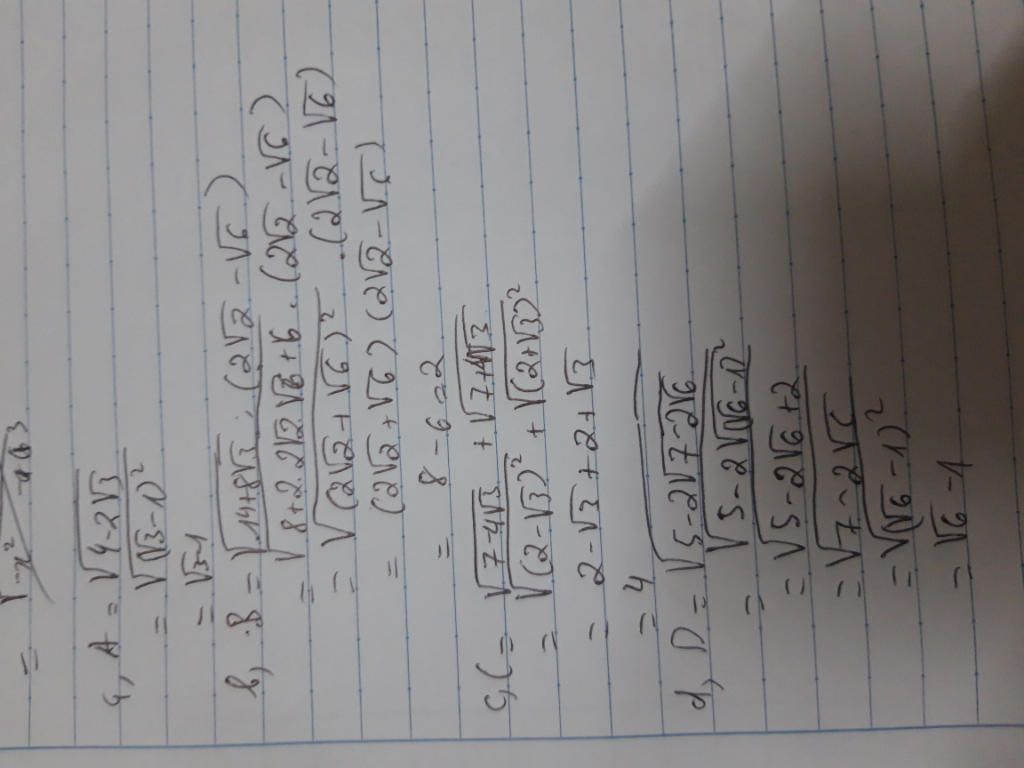 a, A = √(4-2√3)
= √((√3-1)²)
= √3-1
b, B = √(14+8√3) . (2√2 - √6)
= √(8+2.2√2.√6+6) . (2√2 - √6)
= √((2√2+√6)²) . (2√2 - √6)
= (2√2+√6) (2√2 - √6)
= 8-6=2
c, C = √(7-4√3) + √(7+4√3)
= √((2-√3)²) + √((2+√3)²)
= 2-√3+2+√3
= 4
d, D = √(5-2√(7-2√6))
= √(5-2√((√6-1)²))
= √(5-2√6+2)
= √(7-2√6)
= √((√6-1)²)
= √6-1